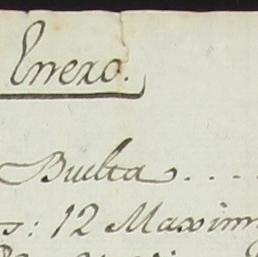 Enero.
Buelta....
s: 12 Maxim